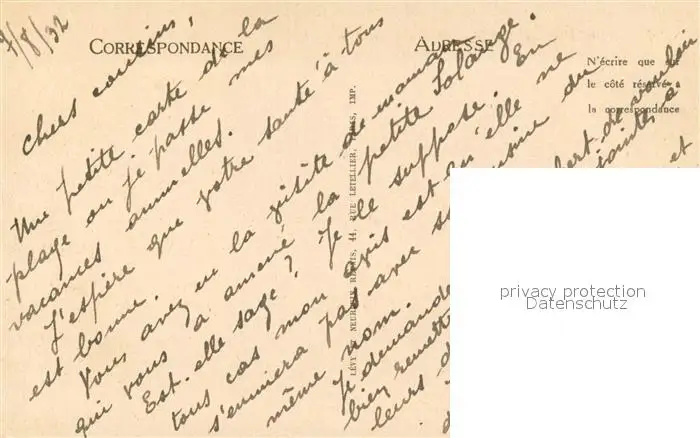 7/8/32
CORRESPONDANCE
ADRESSE
N'écrire que sur
le côté réservé à
la correspondance
LÉVY ET NEURDEIN RÉUNIS, 44, RUE LETELLIER, PARIS, IMP.
Chers cousins,
Une petite carte de la
plage où je passe mes
vacances annuelles.
J'espère que votre santé à tous
est bonne.
Vous avez eu la visite de maman
qui vous a amené la petite Solange.
Est-elle sage? Je le suppose. En
tous cas mon avis est qu'elle ne
s'ennuiera pas avec sa cousine du
même nom.
Je demande bert de vouloir
bien remett jointes à
leurs d et
privacy protection
Datenschutz